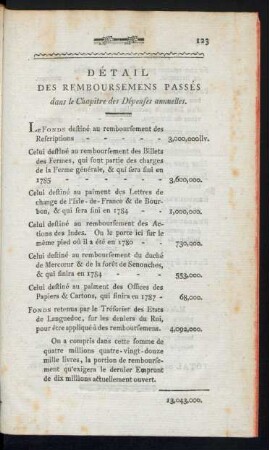 123
DÉTAIL
DES REMBOURSEMENS PASSÉS
dans le Chapitre des Dépenses annuelles.
LE FONDS destiné au remboursement des
Rescriptions - - - - 3,000,000liv.
Celui destiné au remboursement des Billets
des Fermes, qui font partie des charges
de la Ferme générale, & qui sera fini en
1785 - - - - - 3,600,000.
Celui destiné au paiment des Lettres de
change de l'Isle-de-France & de Bour-
bon, & qui sera fini en 1784 - - 1,000,000.
Celui destiné au remboursement des Ac-
tions des Indes. On le porte ici sur le
même pied où il a été en 1780 - - 730,000.
Celui destiné au remboursement du duché
de Mercœur & de la forêt de Senonches,
& qui finira en 1784 - - - 553,000.
Celui destiné au paiment des Offices des
Papiers & Cartons, qui finira en 1787 - 68,000.
FONDS retenus par le Trésorier des Etats
de Languedoc, sur les deniers du Roi,
pour être appliqué à des remboursemens. 4,092,000.
On a compris dans cette somme de
quatre millions quatre-vingt-douze
mille livres, la portion de rembourse-
ment qu'exigera le dernier Emprunt
de dix millions actuellement ouvert.
13,043,000.